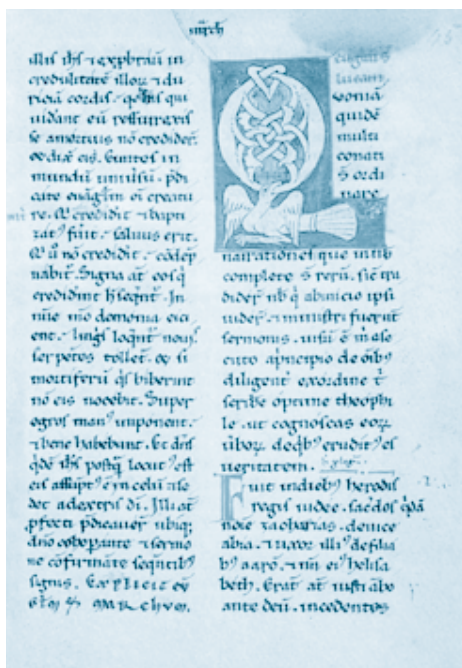 illis ihs ⁊ exprobrau in
credulitatē illoꝝ ⁊ du
riciā cordis qui
uidant eū resurrexis
se amortuis nō credider̄
eis. Euntes in
mundū uniuersū. pdi
cate euāgliu oī creatu
re. Q credidit ⁊ bapti
zatꝰ fuit. saluus erit.
Q ū nō credidit. cōdēp
nabit. Signa at eos q
credidint h seqnt. In
nōie mō demonia eici
ent. lingis loqnt nouis.
serpētes tollēt. ⁊ si
mortiferū qs biberint
nō eis nocebit. Super
egros manꝰ imponent.
⁊ bene habebunt. Et dn̄s
qdē ihs postq locutꝰ est
eis assūptꝰ ē in celū ⁊ se
det adextris di. Illi at
pfecti pdicauer ubiq;
dn̄o cooperante ⁊ sermo
nē cōfirmāte seqntibꝫ
signis. Explicit eu
Marchum.
Q
uoniā
quidē
multi
conati
s ordi
nare
narrationes que in nb
complete s rerū. sic tra
dider nb q abinicio ipsi
uider. ⁊ ministri fuerūt
sermonis. uisū ē m asse
cuto aprincipio de oībꝫ
diligent exordine t
scribe optime theophi
le. ut cognoscas eoꝝ
uerboꝝ deqbꝫ eruditꝰ es
ueritatem.
Fuit indiebꝫ herodis
regis iudee. sacdos qdā
noīe zacharias. deuice
abia. ⁊ uxor illi defilia
bꝫ aarō. ⁊ nm eiꝰ helisa
beth. Erāt at iusti abo
ante deū. incedentes